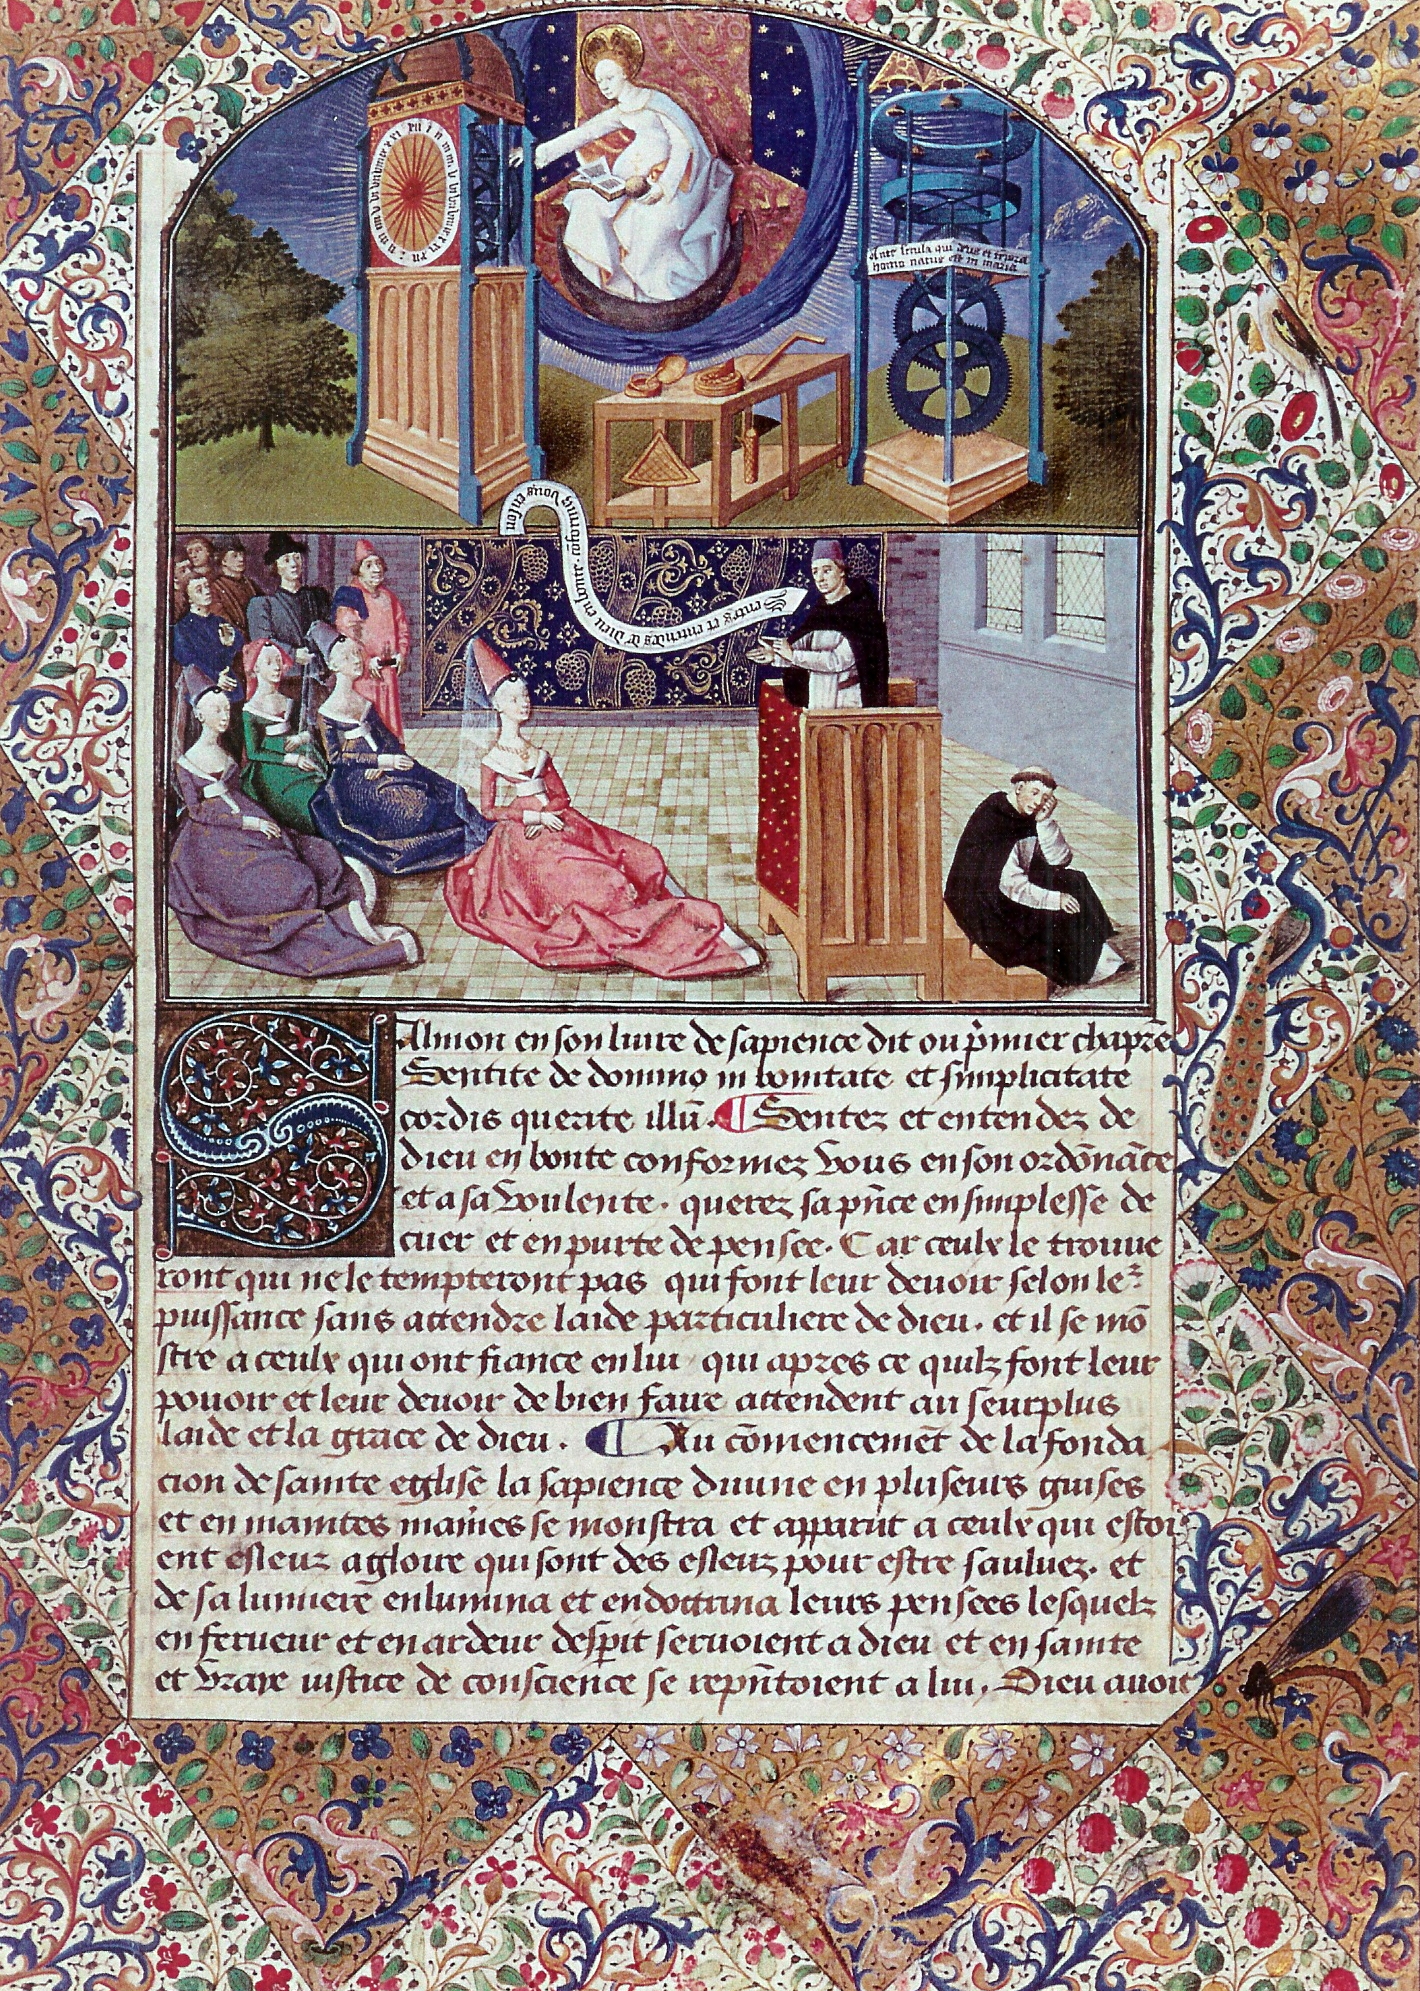 ante secula qui deus et tempora
homo natus est in maria
Sentez et entendes de dieu en bonte
Salmon en son liure de sapience dit ou p̄mier chapr̄e
Sentite de domino in bonitate et simplicitate
cordis querite illū. ¶ Sentez et entendez de
dieu en bonte conformez vous en son ordōnāce
et a sa voulente. querez sa pn̄ce en simplesse de
cuer et en purte de pensee. Car ceulx le trouue
ront qui ne le tempteront pas qui font leur deuoir selon le²
puissance sans attendre laide particuliere de dieu. et il se mō
stre a ceulx qui ont fiance en lui qui apres ce quilz font leur
pouoir et leur deuoir de bien faire attendent au seurplus
laide et la grace de dieu. ¶ Au cōmencemēt de la fonda
cion de sainte eglise la sapience diuine en pluseurs guises
et en maintes man̄ies se monstra et apparut a ceulx qui estoi
ent esleuz a gloire qui sont des esleuz pour estre sauluez. et
de sa lumiere enlumina et endottrina leurs pensees lesquelz
en ferueur et en ardeur desp̄it seruoient a dieu et en sainte
et vraye iustice de conscience se repn̄toient a lui. Dieu auoit